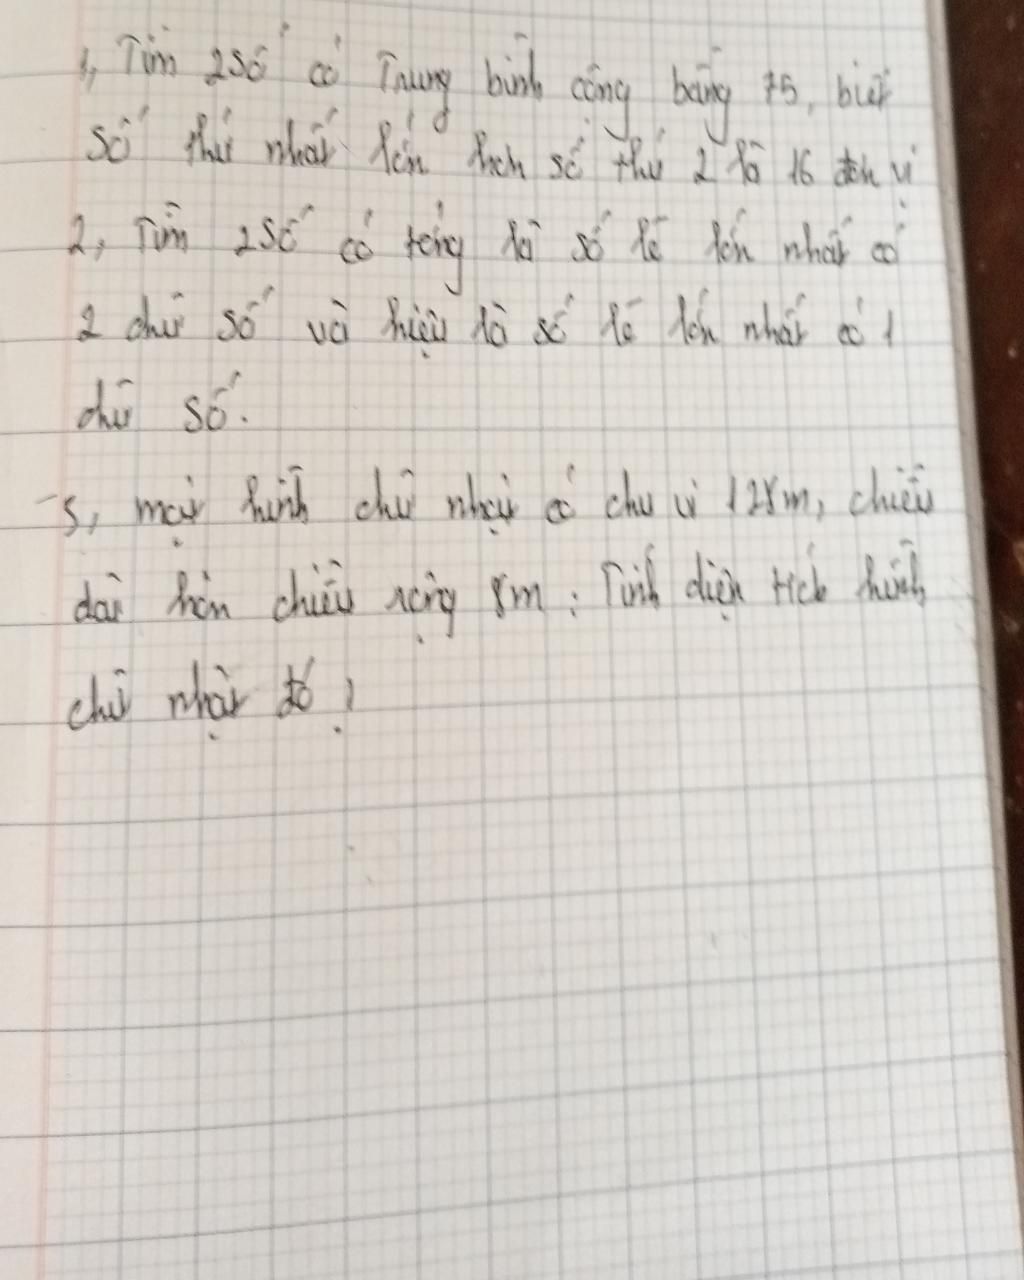 1, Tìm 2 số có Trung bình cộng bằng 75, biết
số thứ nhất lớn hơn số thứ 2 là 16 đơn vị
2, Tìm 2 số có tổng là số lẻ lớn nhất có
2 chữ số và hiệu là số lẻ lớn nhất có 1
chữ số.
3, một hình chữ nhật có chu vi 128m, chiều
dài hơn chiều rộng 8m. Tính diện tích hình
chữ nhật đó ?